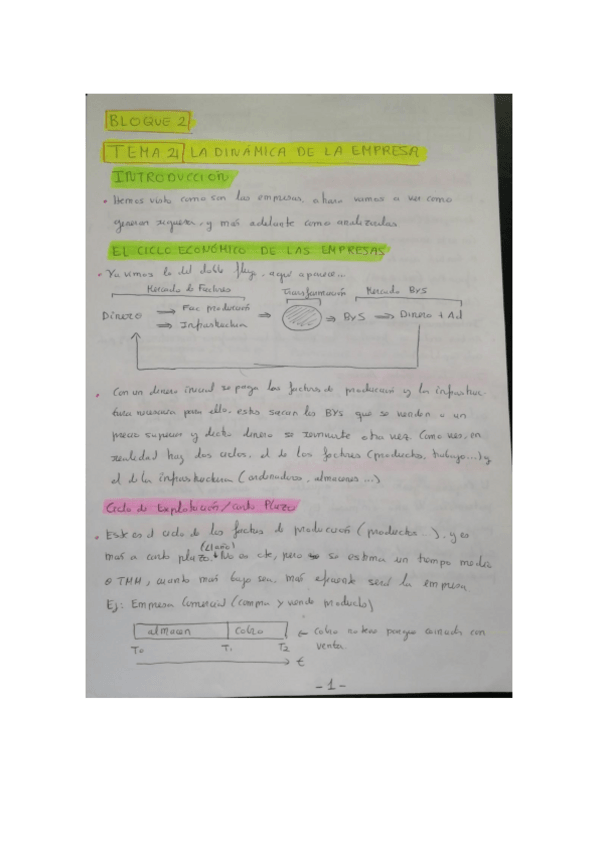 BLOQUE 2
TEMA 2 LA DINÁMICA DE LA EMPRESA
INTRODUCCION
• Hemos visto como son las empresas, ahora vamos a ver como
generan riqueza, y mas adelante como analizarlas
EL CICLO ECONÓMICO DE LAS EMPRESAS
• Ya vimos lo del doble flujo, aqui aparece...
Mercado de Factores Transformación Mercado BYS
Dinero ⇒ Fac producción ⇒ ⇒ BYS ⇒ Dinero + Ad
⇒ Infraestructura
• Con un dinero inicial se paga los factores de produccion y la infraestruc-
tura necesaria para ello, estos sacan los BYS que se venden a un
precio superior y dicho dinero se reinvierte otra vez. Como veo, en
realidad hay dos ciclos, el de los factores (productos, trabajo...) y
el de la infraestructura (ordenadores, almacenes...)
Ciclo de Explotación / corto Plazo
• Este es el ciclo de los factores de producción (productos...), y es
(<1 año)
mas a corto plazo. No es cte, pero se estima un tiempo medio
o TMM, cuanto mas bajo sea, mas eficiente será la empresa
Ej: Empresa Comercial (compra y vende producto)
almacen cobro ← Cobro no tiene porque coincidir con
venta
T0 T1 T2
t
-1-